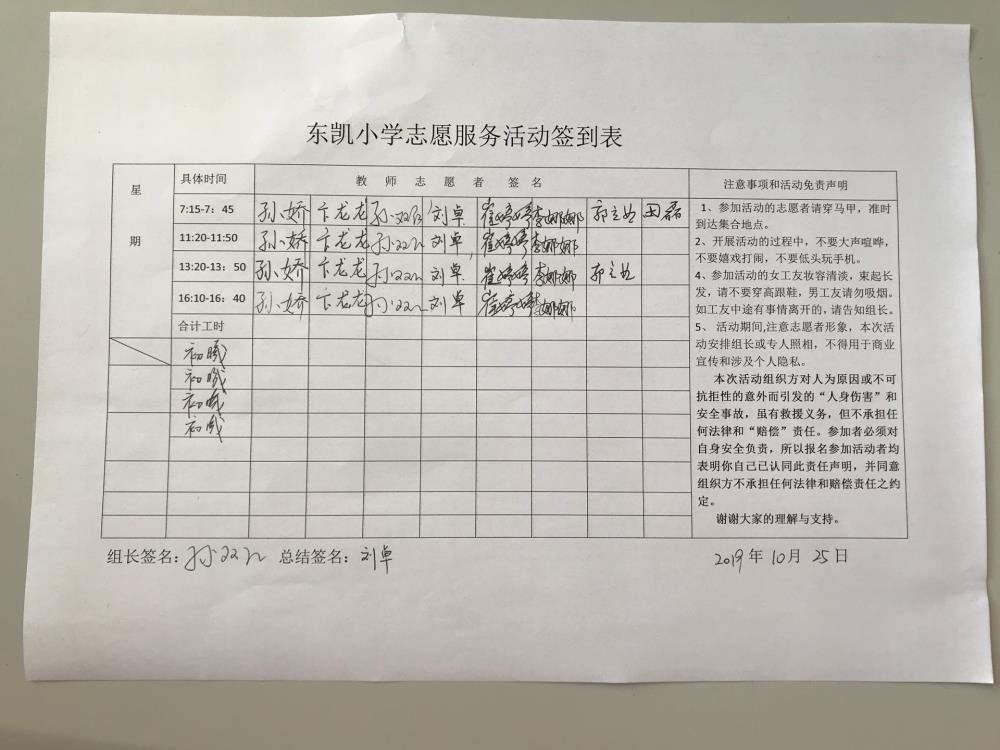 东凯小学志愿服务活动签到表
星期
具体时间 教师志愿者签名 注意事项和活动免责声明
7:15-7：45 孙娇 卞龙龙 孙双 刘卓 崔婷婷 李娜娜 郭 田磊
11:20-11:50 孙娇 卞龙龙 孙双 刘卓 崔婷婷 李娜娜
13:20-13：50 孙娇 卞龙龙 孙双 刘卓 崔婷婷 李娜娜 郭
16:10-16：40 孙娇 卞龙龙 孙双 刘卓 崔婷婷 李娜娜
合计工时
初曦
初曦
初曦
初曦
1、参加活动的志愿者请穿马甲，准时
到达集合地点。
2、开展活动的过程中，不要大声喧哗，
不要嬉戏打闹，不要低头玩手机。
4、参加活动的女工友妆容清淡，束起长
发，请不要穿高跟鞋，男工友请勿吸烟。
如工友中途有事情离开的，请告知组长。
5、 活动期间,注意志愿者形象，本次活
动安排组长或专人照相，不得用于商业
宣传和涉及个人隐私。
本次活动组织方对人为原因或不可
抗拒性的意外而引发的“人身伤害”和
安全事故，虽有救援义务，但不承担任
何法律和“赔偿”责任。参加者必须对
自身安全负责，所以报名参加活动者均
表明你自己已认同此责任声明，并同意
组织方不承担任何法律和赔偿责任之约
定。
谢谢大家的理解与支持。
组长签名：孙双 总结签名：刘卓 2019年10月25日